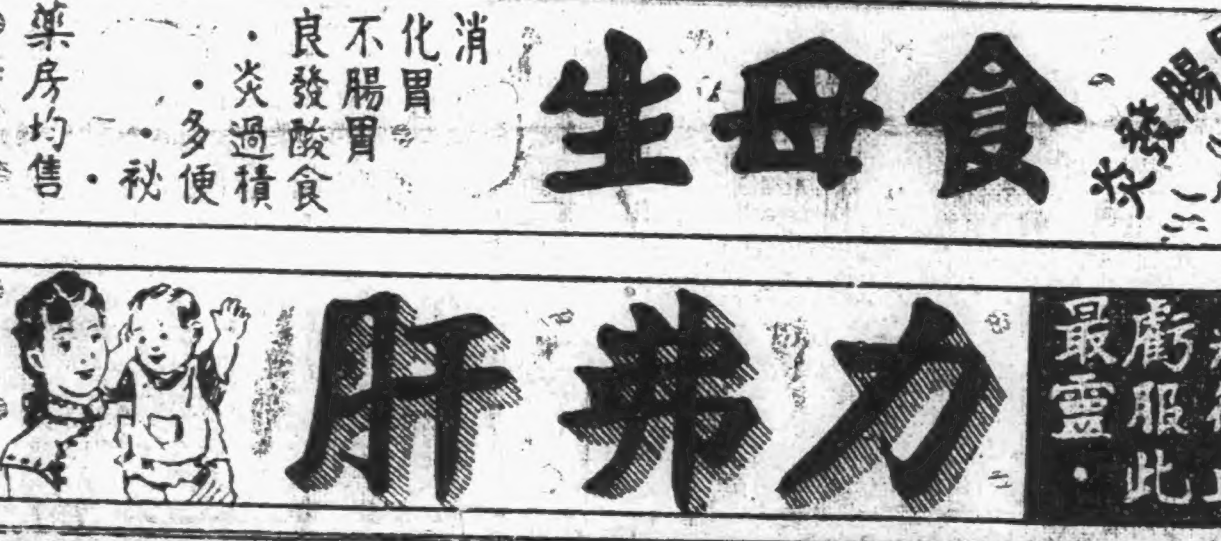 腸發炎
食母生
消化不良・
胃腸發炎・
胃酸過多・
食積便秘・
薬房均售
虧服此
最靈・
力弗肝